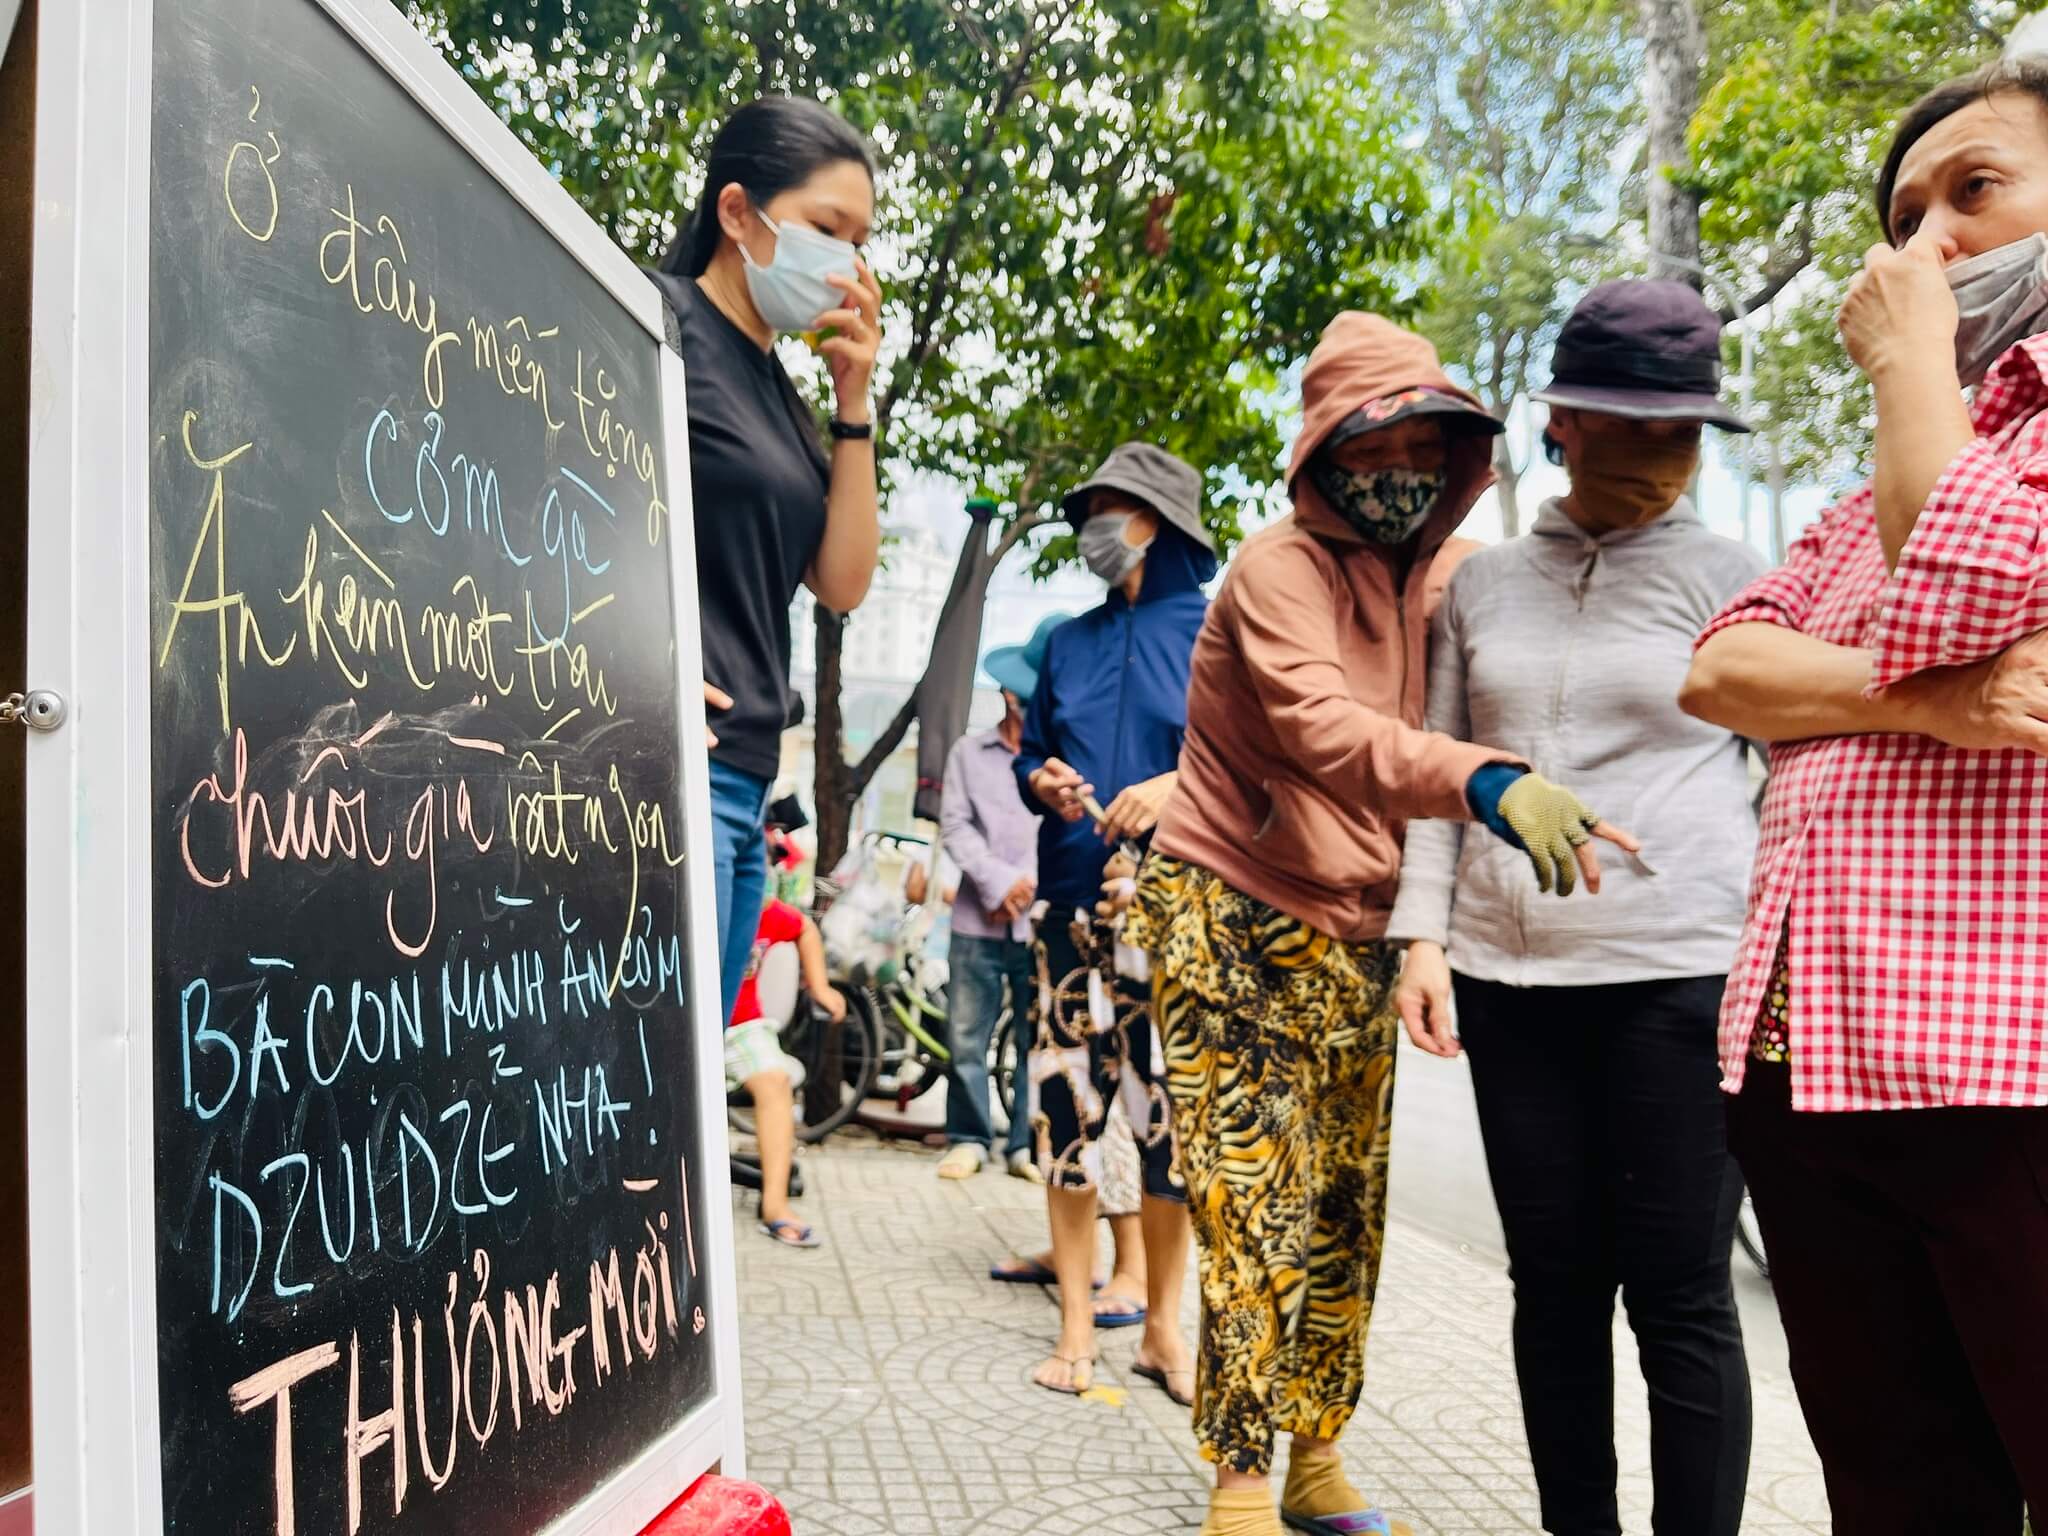 Ở đây mến tặng
Cơm gà
Ăn kèm một trái
chuối già rất ngon
BÀ CON MÌNH ĂN CƠM
DZUI DZẺ NHA!
THƯỞNG MỜI!